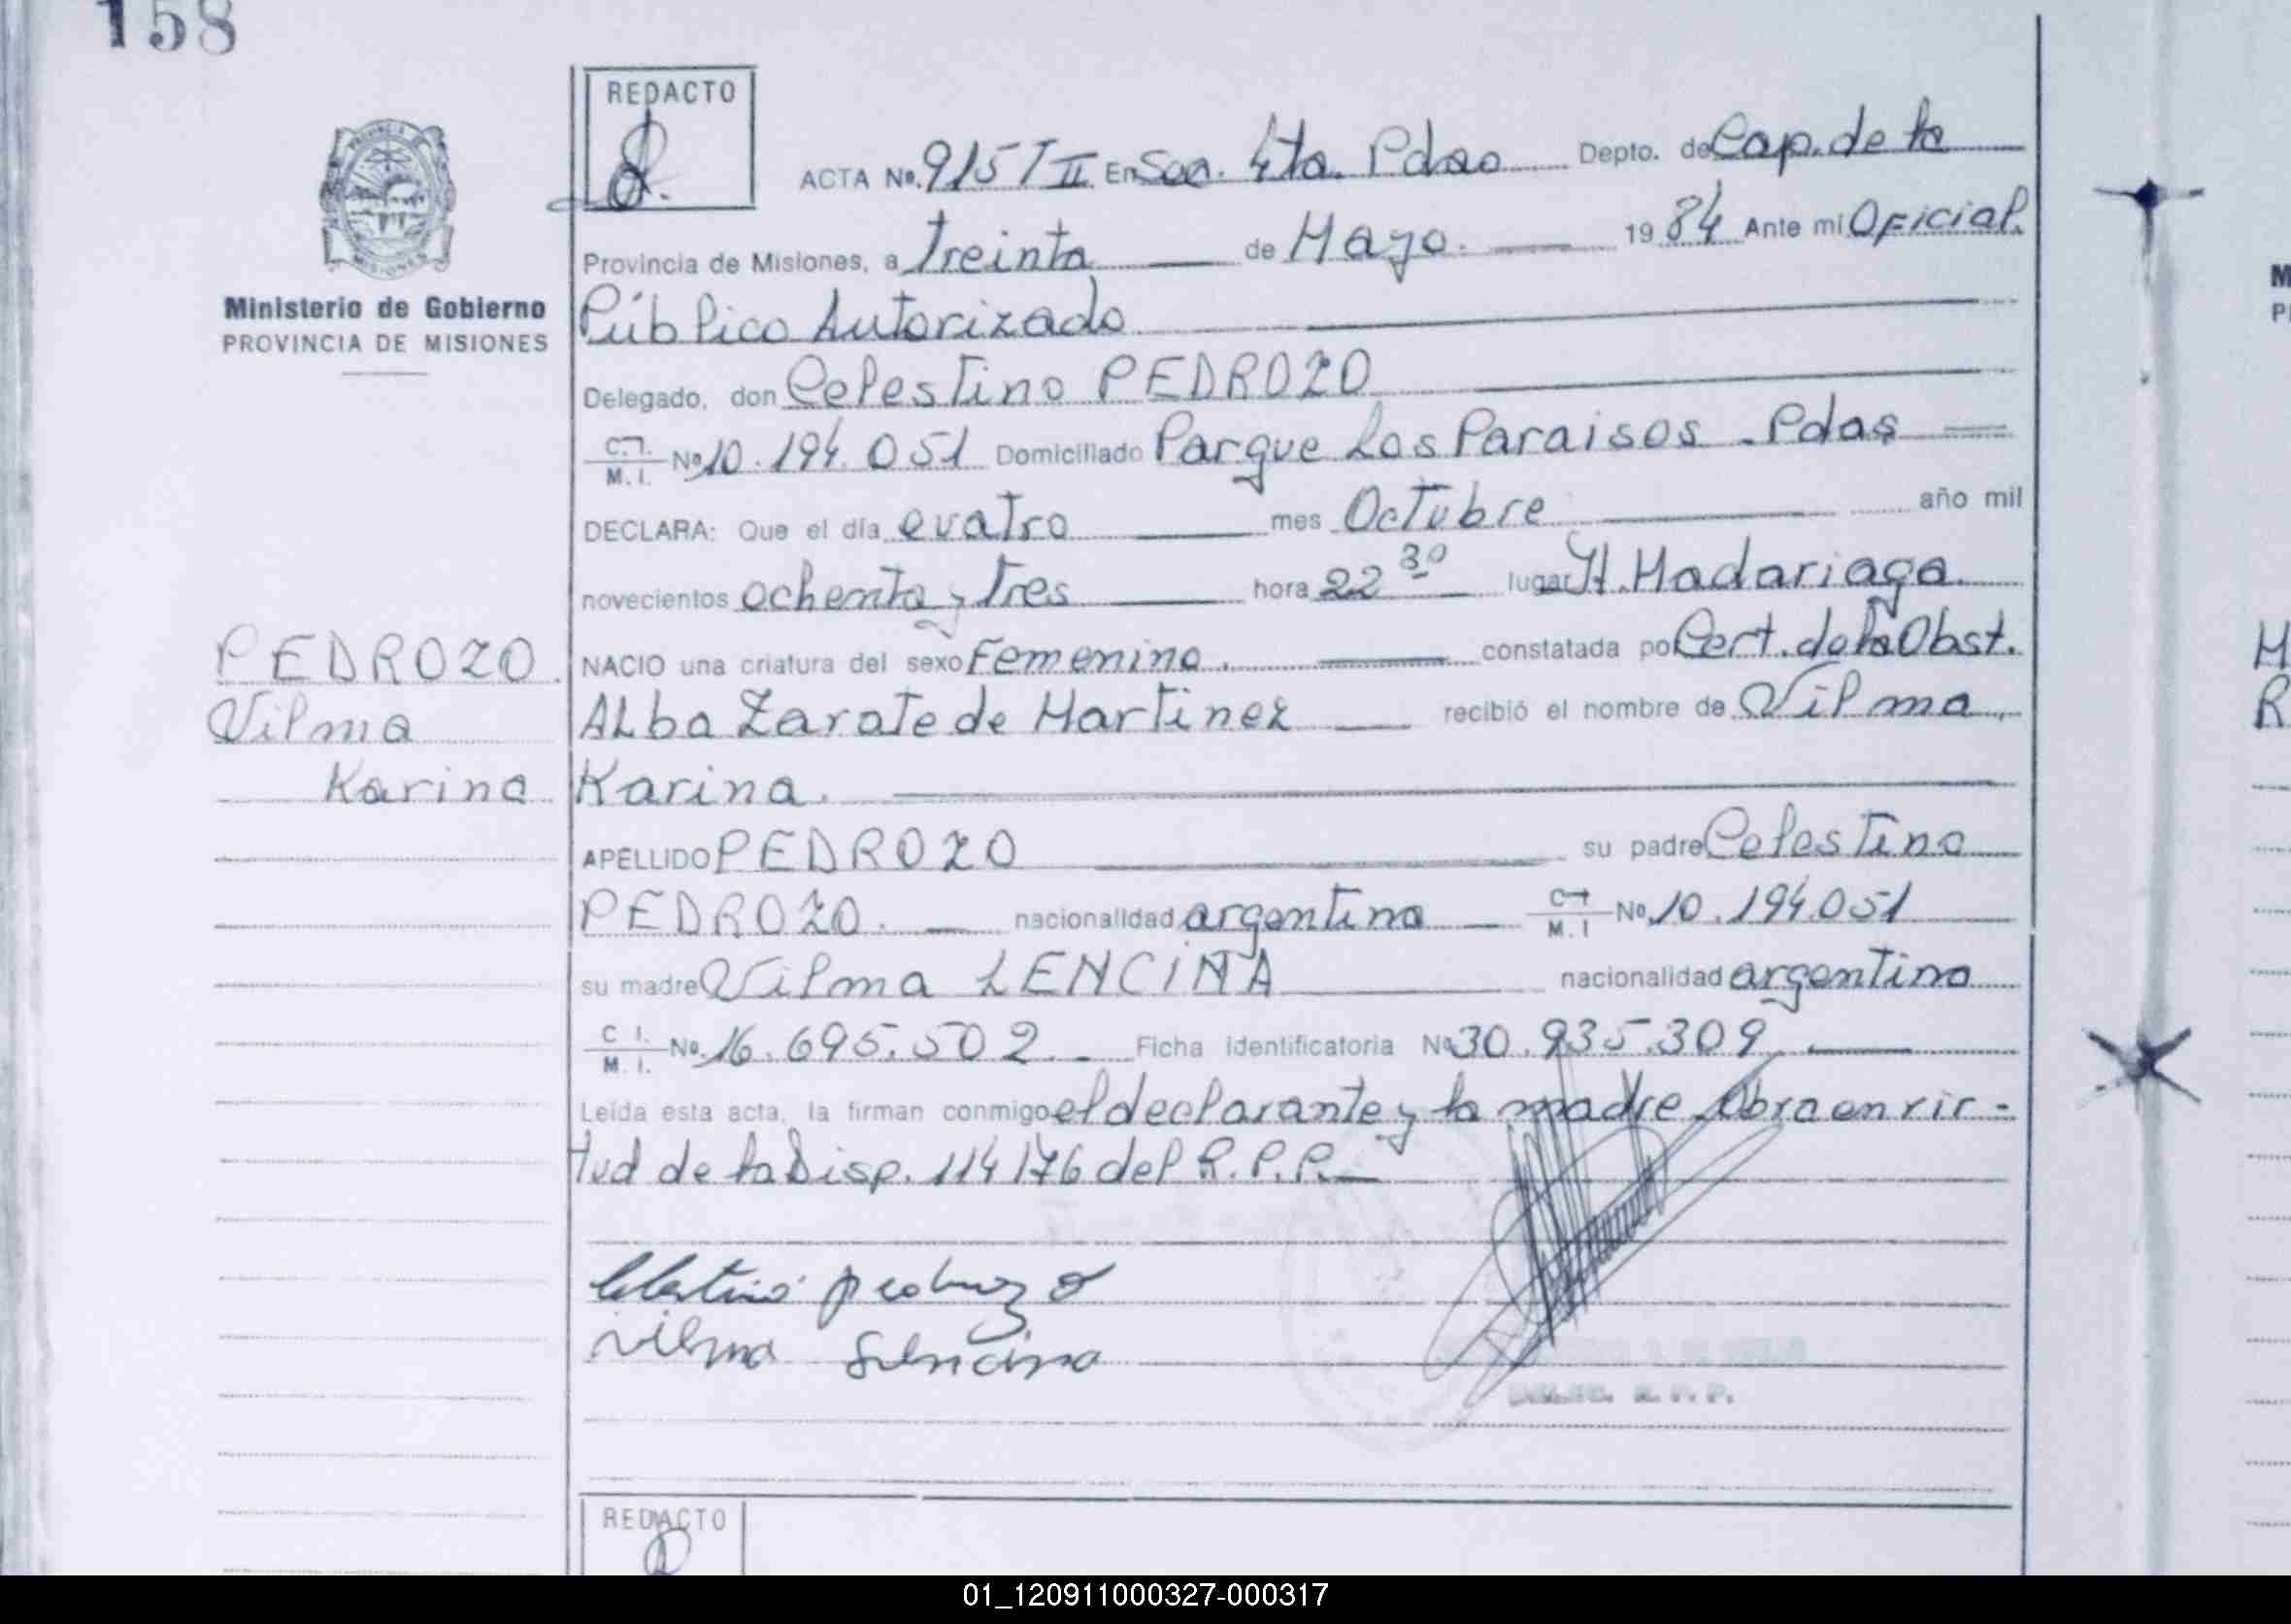 158
REDACTO
ACTA Nº. 915 T II En Sec. 4ta. Pdas Depto. de Cap. de la
Provincia de Misiones, a Treinta de Mayo. 1984 Ante mi Oficial.
Ministerio de Gobierno
PROVINCIA DE MISIONES
Público Autorizado
Delegado, don Celestino PEDROZO
C.I. M.I. Nº 10.194.051 Domiciliado Parque Los Paraisos - Pdas
DECLARA: Que el día cuatro mes Octubre año mil
novecientos ochenta y Tres hora 22 30 lugar H. Madariaga.
NACIO una criatura del sexo Femenino. constatada po Cert. de la Obst.
Alba Zarate de Martinez recibió el nombre de Vilma
Karina.
PEDROZO
Vilma
Karina
APELLIDO PEDROZO su padre Celestino
PEDROZO. nacionalidad argentina C.I. M.I Nº 10.194.051
su madre Vilma LENCINA nacionalidad argentina
C I. M. I. Nº. 16.695.502. Ficha identificatoria Nº 30.935.309
Leída esta acta, la firman conmigo el declarante y la madre Obra en vir-
tud de la Disp. 114/76 del R.P.P.
Celestino pedrozo
vilma Lencina
R. P. P.
REDACTO
01_120911000327-000317